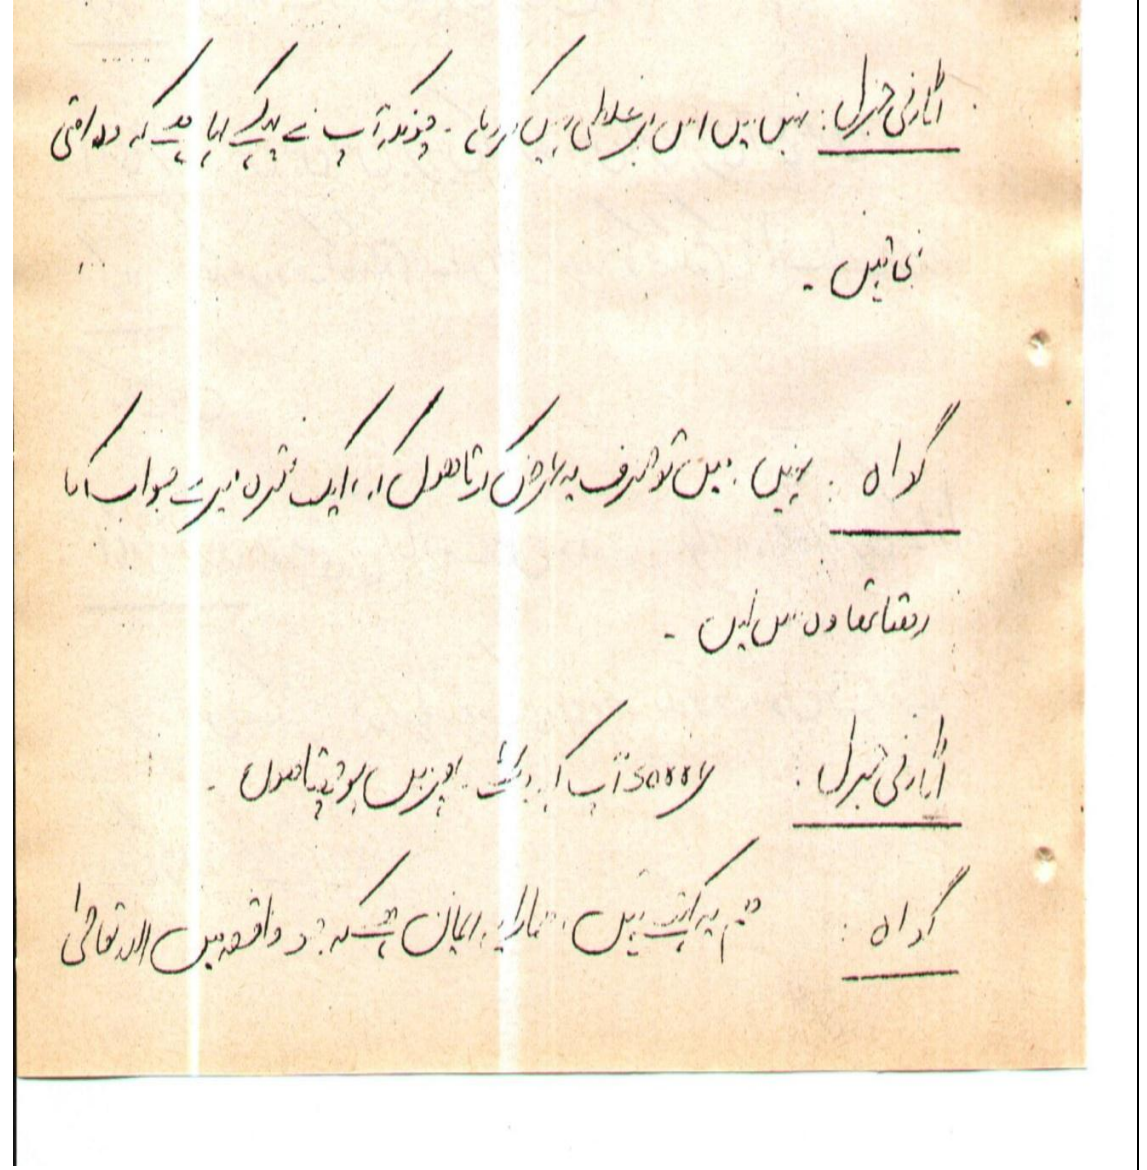 اٹارنی جنرل : نہیں میں اس میں غلطی نہیں کر رہا - چونکہ آپ نے پہلے کہا ہے کہ وہ امتی
نبی ہیں -
گواہ : نہیں ، میں تو صرف یہ عرض کرتا ہوں کہ ایک فقرہ میرے جواب کا
رہتا تھا وہ سن لیں -
اٹارنی جنرل : sorry آپ کہہ دیجئے پھر میں پوچھتا ہوں -
گواہ : ہم یہ کہتے ہیں ، ہمارا یہ ایمان ہے کہ جو واقعہ میں اللہ تعالیٰ